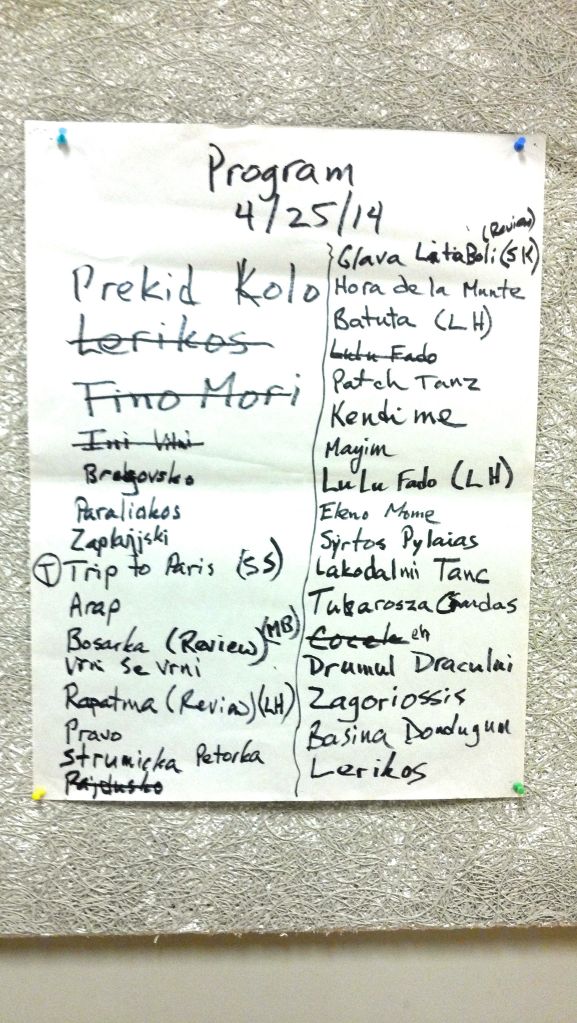 Program
4/25/14
Prekid Kolo
Lerikos
Fino Mori
Ini Vitni
Bregovsko
Paraliakos
Zaplanjski
T Trip to Paris (SS)
Arap
Bosarka (Review) (MB)
Vrni Se Vrni
Rapatma (Review) (LH)
Pravo
Strumicka Petorka
Rajdusko
(Review)
Glava Latia Boli (SK)
Hora de la Munte
Batuta (LH)
Lulu Fado
Patch Tanz
Kendime
Mayim
Lulu Fado (LH)
Eleno Mome
Syrtos Pylaias
Lakodalmi Tanc
Tukarosza Csardas
Cocek eh
Drumul Dracului
Zagoriossis
Basina Dondugum
Lerikos